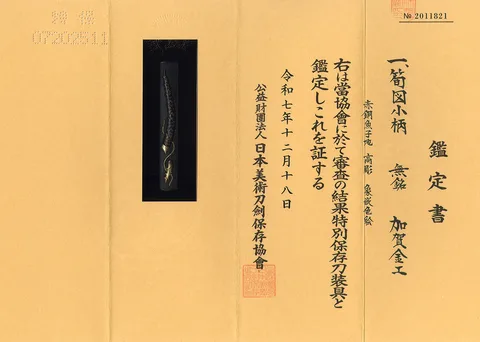 № 2011821
鑑定書
一、筍図小柄 無銘 加賀金工
赤銅魚子地 高彫 象嵌色絵
右は當協會に於て審査の結果特別保存刀装具と
鑑定しこれを証する
令和七年十二月十八日
公益財團法人 日本美術刀劍保存協會
特保
07202511